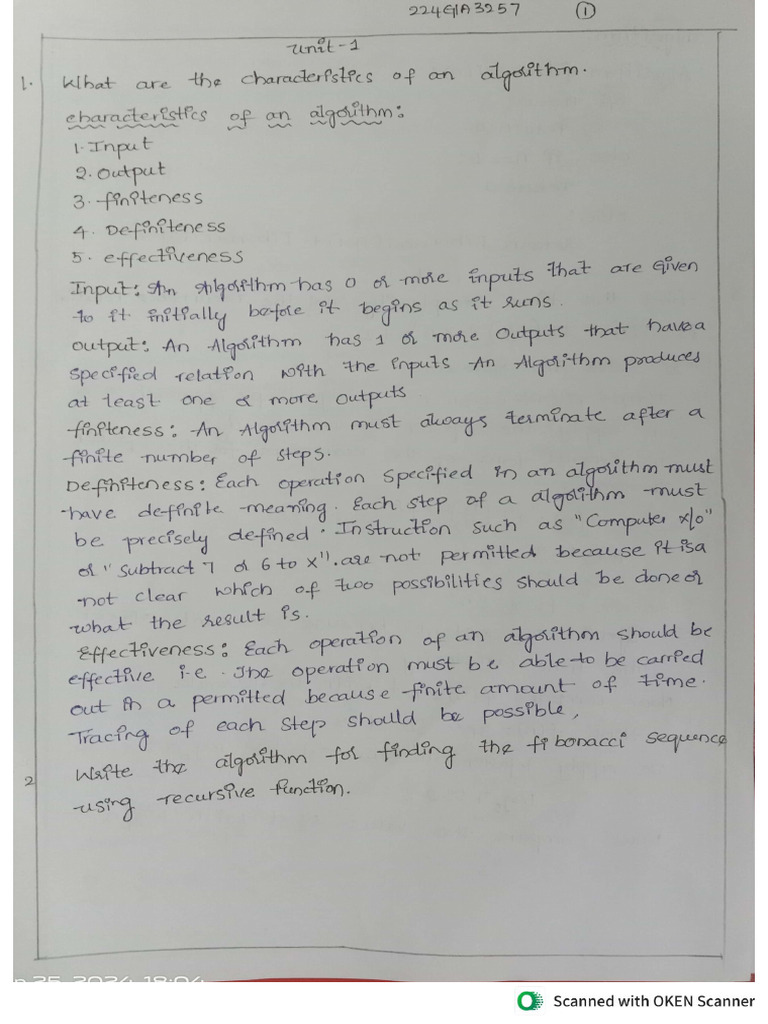 224G1A3257 1
Unit-1
1. What are the characteristics of an algorithm.
characteristics of an algorithm:
1. Input
2. Output
3. finiteness
4. Definiteness
5. effectiveness
Input: An Algorithm has 0 or more inputs that are Given
to it initially before it begins as it runs.
output: An Algorithm has 1 or more Outputs that have a
specified relation with the inputs An Algorithm produces
at least one or more outputs
finiteness: An Algorithm must always terminate after a
finite number of steps.
Definiteness: Each operation specified in an algorithm must
have definite meaning. Each step of a algorithm must
be precisely defined. Instruction such as "Computer x/0"
or "subtract 7 or 6 to x". are not permitted because it is a
not clear which of two possibilities should be done or
what the result is.
Effectiveness: Each operation of an algorithm should be
effective i.e. The operation must be able to be carried
out in a permitted because finite amount of time.
Tracing of each step should be possible,
2 Write the algorithm for finding the fibonacci sequence
using recursive function.
25, 2024 18:04
Scanned with OKEN Scanner